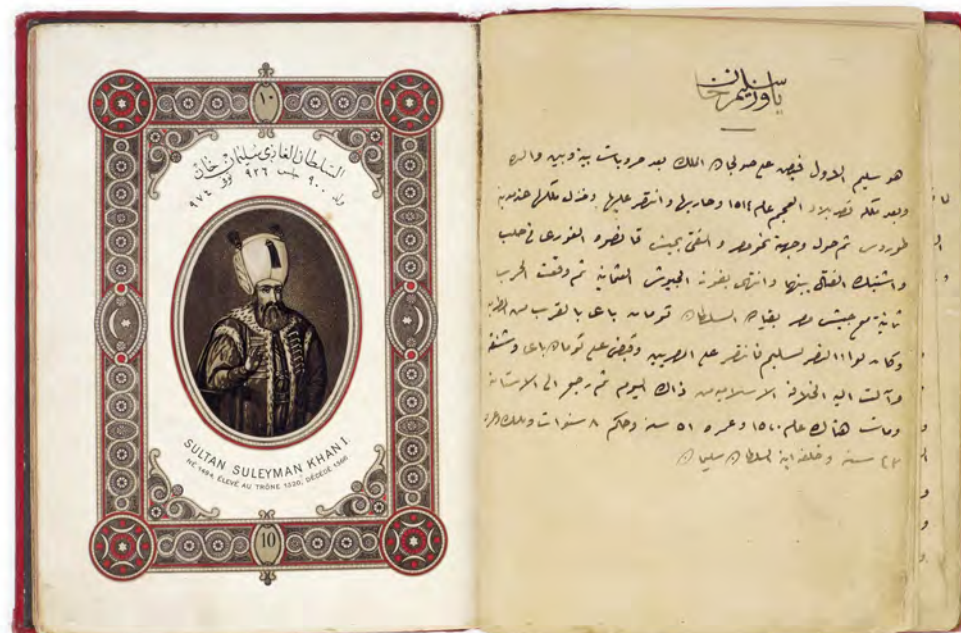 ١٠
السلطان الغازي سليمان خان
ولاد ٩٠٠ جلوس ٩٢٦ وفات ٩٧٤
SULTAN SULEYMAN KHAN I.
NÉ 1494, ÉLEVÉ AU TRÔNE 1520, DÉCÉDÉ 1566
10
ياوز سليم خان
هو سليم الاول قبض على صولجان الملك بعد حروبات بينه وبين والده
وبعد تملكه قصد بلاد العجم عام ١٥١٤ وحاربها وانتصر عليها
ثم حول وجهه نحو مصر والتقى بجيش قانصوه الغوري في حلب
واشتبك القتال بينهما وانتهى بفوز الجيوش العثمانية ثم وقعت الحرب
ثانية مع جيش مصر بقيادة السلطان تومان باي بالقرب من
وكان لواء النصر لسليم فانتصر على المصريين وقبض على تومان باي وشنقه
وآلت اليه الخلافة الاسلامية من ذاك اليوم ثم رجع الى الاستانة
ومات هناك عام ١٥٢٠ وعمره ٥١ سنه وحكم ٨ سنوات
سنة وخلفه ابنه السلطان سليمان